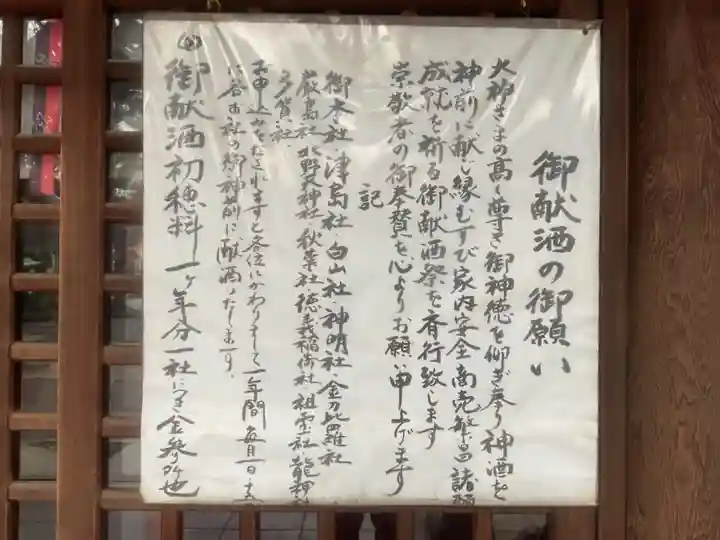 御献酒の御願い
大神さまの高く尊き御神徳を仰ぎ奉り神酒を
神前に献じ縁むすび家内安全商売繁昌諸願
成就を祈る御献酒祭を斎行致します
崇敬者の御奉賛を心よりお願い申し上げます
記
御本社、津島社、白山社、神明社、金刀比羅社
厳島社、北野天神社、秋葉社、徳義稲荷社、祖霊社、龍神
多賀社、
お申し込みをされますと各位にかわりまして一年間毎月一日、十五
に各お社の御神前に献酒いたします。
御献酒初穂料 一ヶ年分一社につき金参阡也